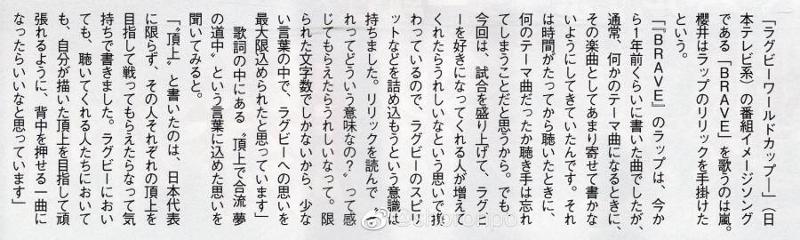 「ラグビーワールドカップ―」（日
本テレビ系）の番組イメージソング
である「BRAVE」を歌うのは嵐。
櫻井はラップのリリックを手掛けた
という。
「『BRAVE』のラップは、今か
ら1年前くらいに書いた曲でしたが、
通常、何かのテーマ曲になるときに、
その楽曲としてあまり寄せて書かな
いようにしてきていたんです。それ
は時間がたってから聴いたときに、
何のテーマ曲だったか聴き手は忘れ
てしまうことだと思うから。でも、
今回は、試合を盛り上げて、ラグビ
ーを好きになってくれる人が増えて
くれたらうれしいなという思いで携
わっているので、ラグビーのスピリ
ットなどを詰め込もうという意識は
持ちました。リリックを読んで〝こ
れってどういう意味なの？〟って感
じてもらえたらうれしいなって。限
られた文字数でしかないから、少な
い言葉の中で、ラグビーへの思いを
最大限込められたと思っています」
歌詞の中にある〝頂上で合流 夢
の道中〟という言葉に込めた思いを
聞いてみると。
「〝頂上〟と書いたのは、日本代表
に限らず、その人それぞれの頂上を
目指して戦ってもらえたらなって気
持ちで書きました。ラグビーにおい
ても、聴いてくれる人たちにおいて
も、自分が描いた頂上を目指して頑
張れるように、背中を押せる一曲に
なったらいいなと思っています」